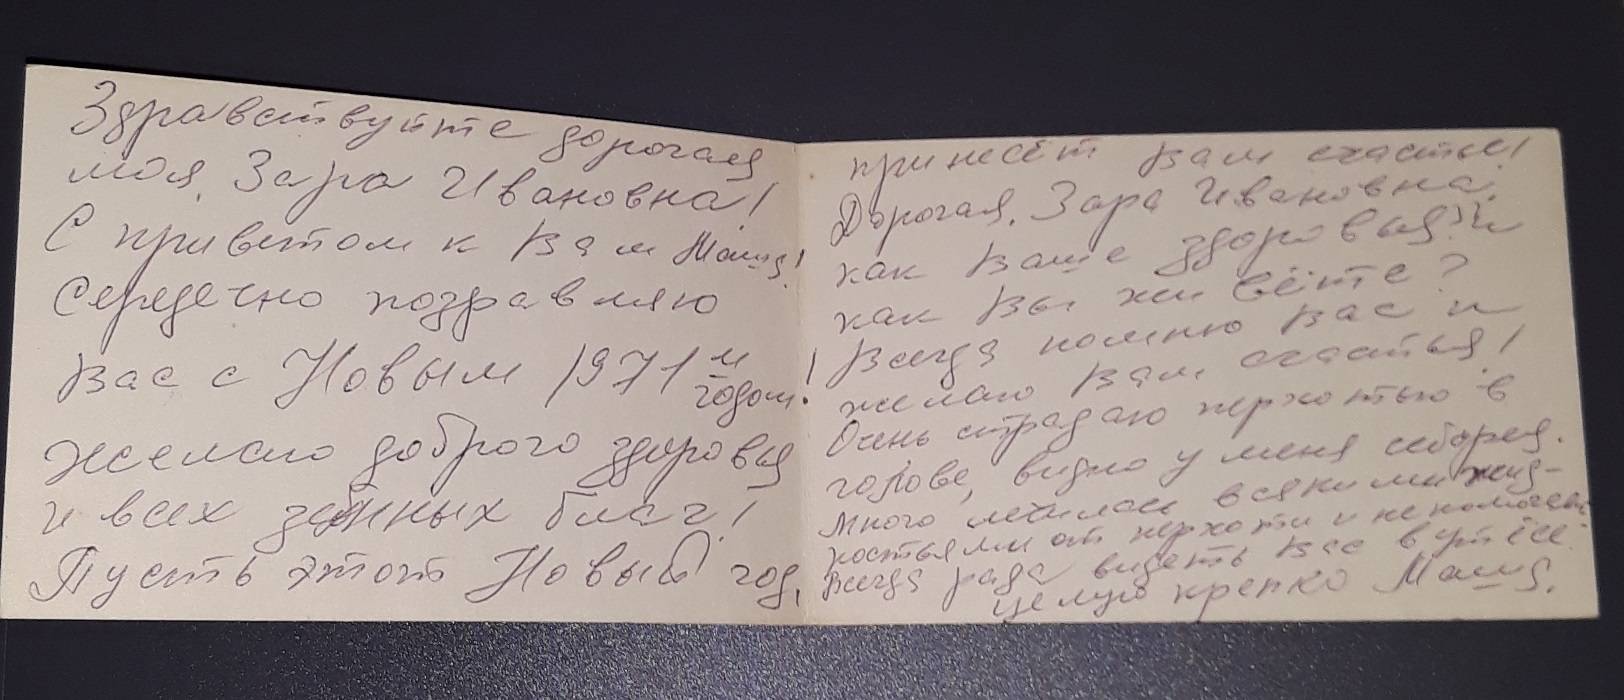 Здравствуйте дорогая
моя, Зара Ивановна!
С приветом к Вам Маша!
Сердечно поздравляю
Вас с Новым 1971 м годом!
желаю доброго здоровья
и всех земных благ!
Пусть этот Новый год,
принесёт Вам счастье!
Дорогая, Зара Ивановна,
как Ваше здоровья? и
как Вы живёте?
Всегда помню Вас и
желаю Вам счастья!
Очень страдаю перхотью в
голове, видно у меня себорея.
Много лечилась всякими жид-
костьями от перхоти и не помогает.
Всегда рада видеть Вас в
целую крепко Маша.